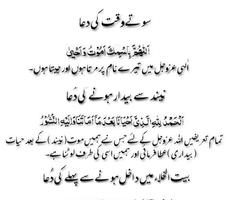 سوتے وقت کی دعا
اَللّٰھُمَّ بِاسْمِكَ اَمُوْتُ وَاَحْیٰی
الٰہی عزوجل میں تیرے نام پر مرتا ہوں اور جیتا ہوں۔
نیند سے بیدار ہونے کی دُعا
اَلْحَمْدُ لِلّٰہِ الَّذِیْ اَحْیَانَا بَعْدَ مَا اَمَاتَنَا وَاِلَیْہِ النُّشُوْرُ
تمام تعریفیں اللہ عزوجل کے لئے جس نے ہمیں موت (نیند) کے بعد حیات
(بیداری) عطا فرمائی اور ہمیں اسی کی طرف لوٹنا ہے۔
بیت الخلاء میں داخل ہونے سے پہلے کی دُعا